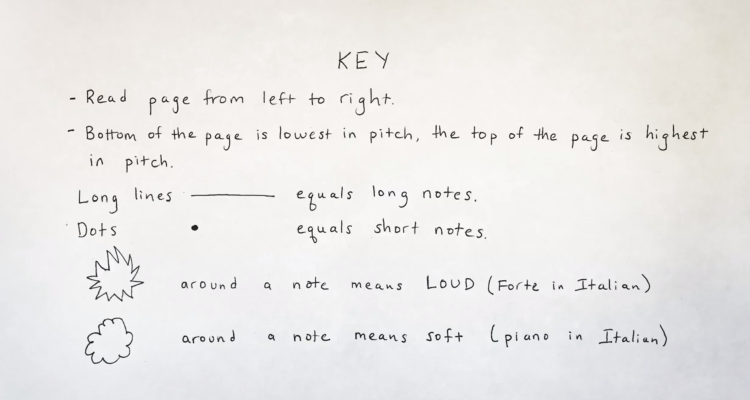 KEY
- Read page from left to right.
- Bottom of the page is lowest in pitch, the top of the page is highest
in pitch.
Long lines equals long notes.
Dots equals short notes.
around a note means LOUD (Forte in Italian)
around a note means soft (piano in Italian)